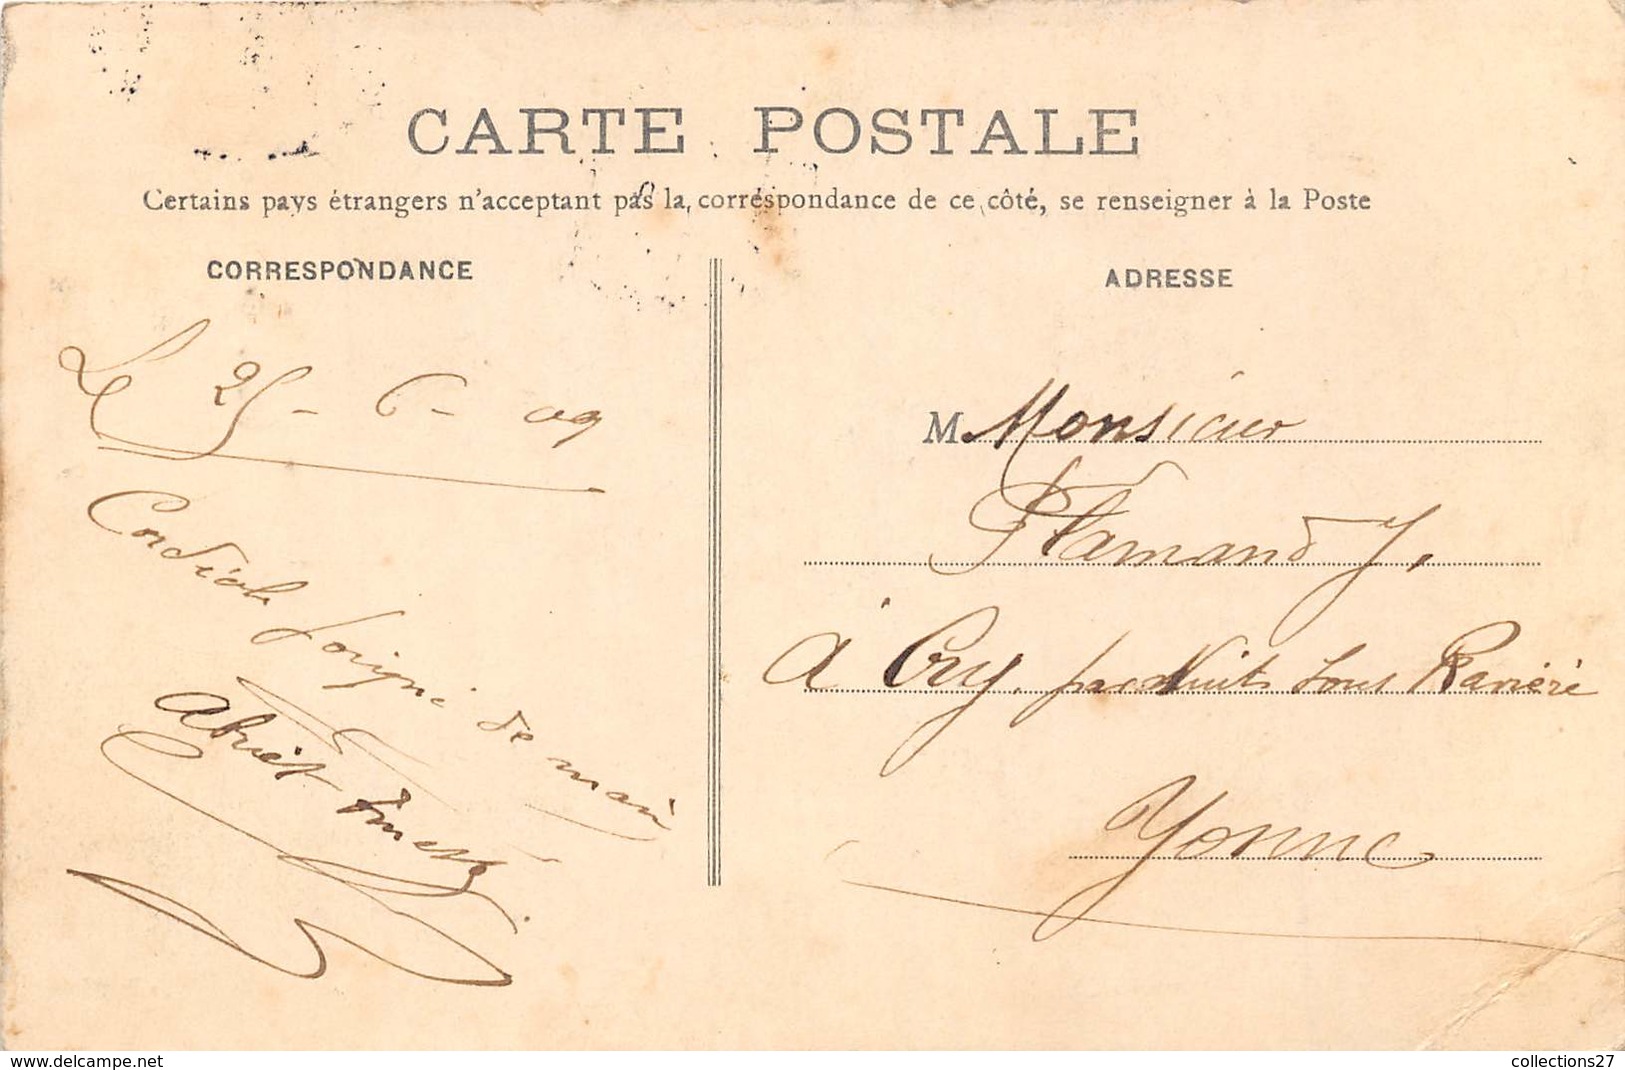 CARTE POSTALE
Certains pays étrangers n'acceptent pas la correspondance de ce côté, se renseigner à la Poste
CORRESPONDANCE
ADRESSE
Le 25 - 6 - 09
Cordiale poigné de main
M. Monsieur
Flamand J.
à Cry par Nuits sous Raviére
Yonne
www.delcampe.net
collections27